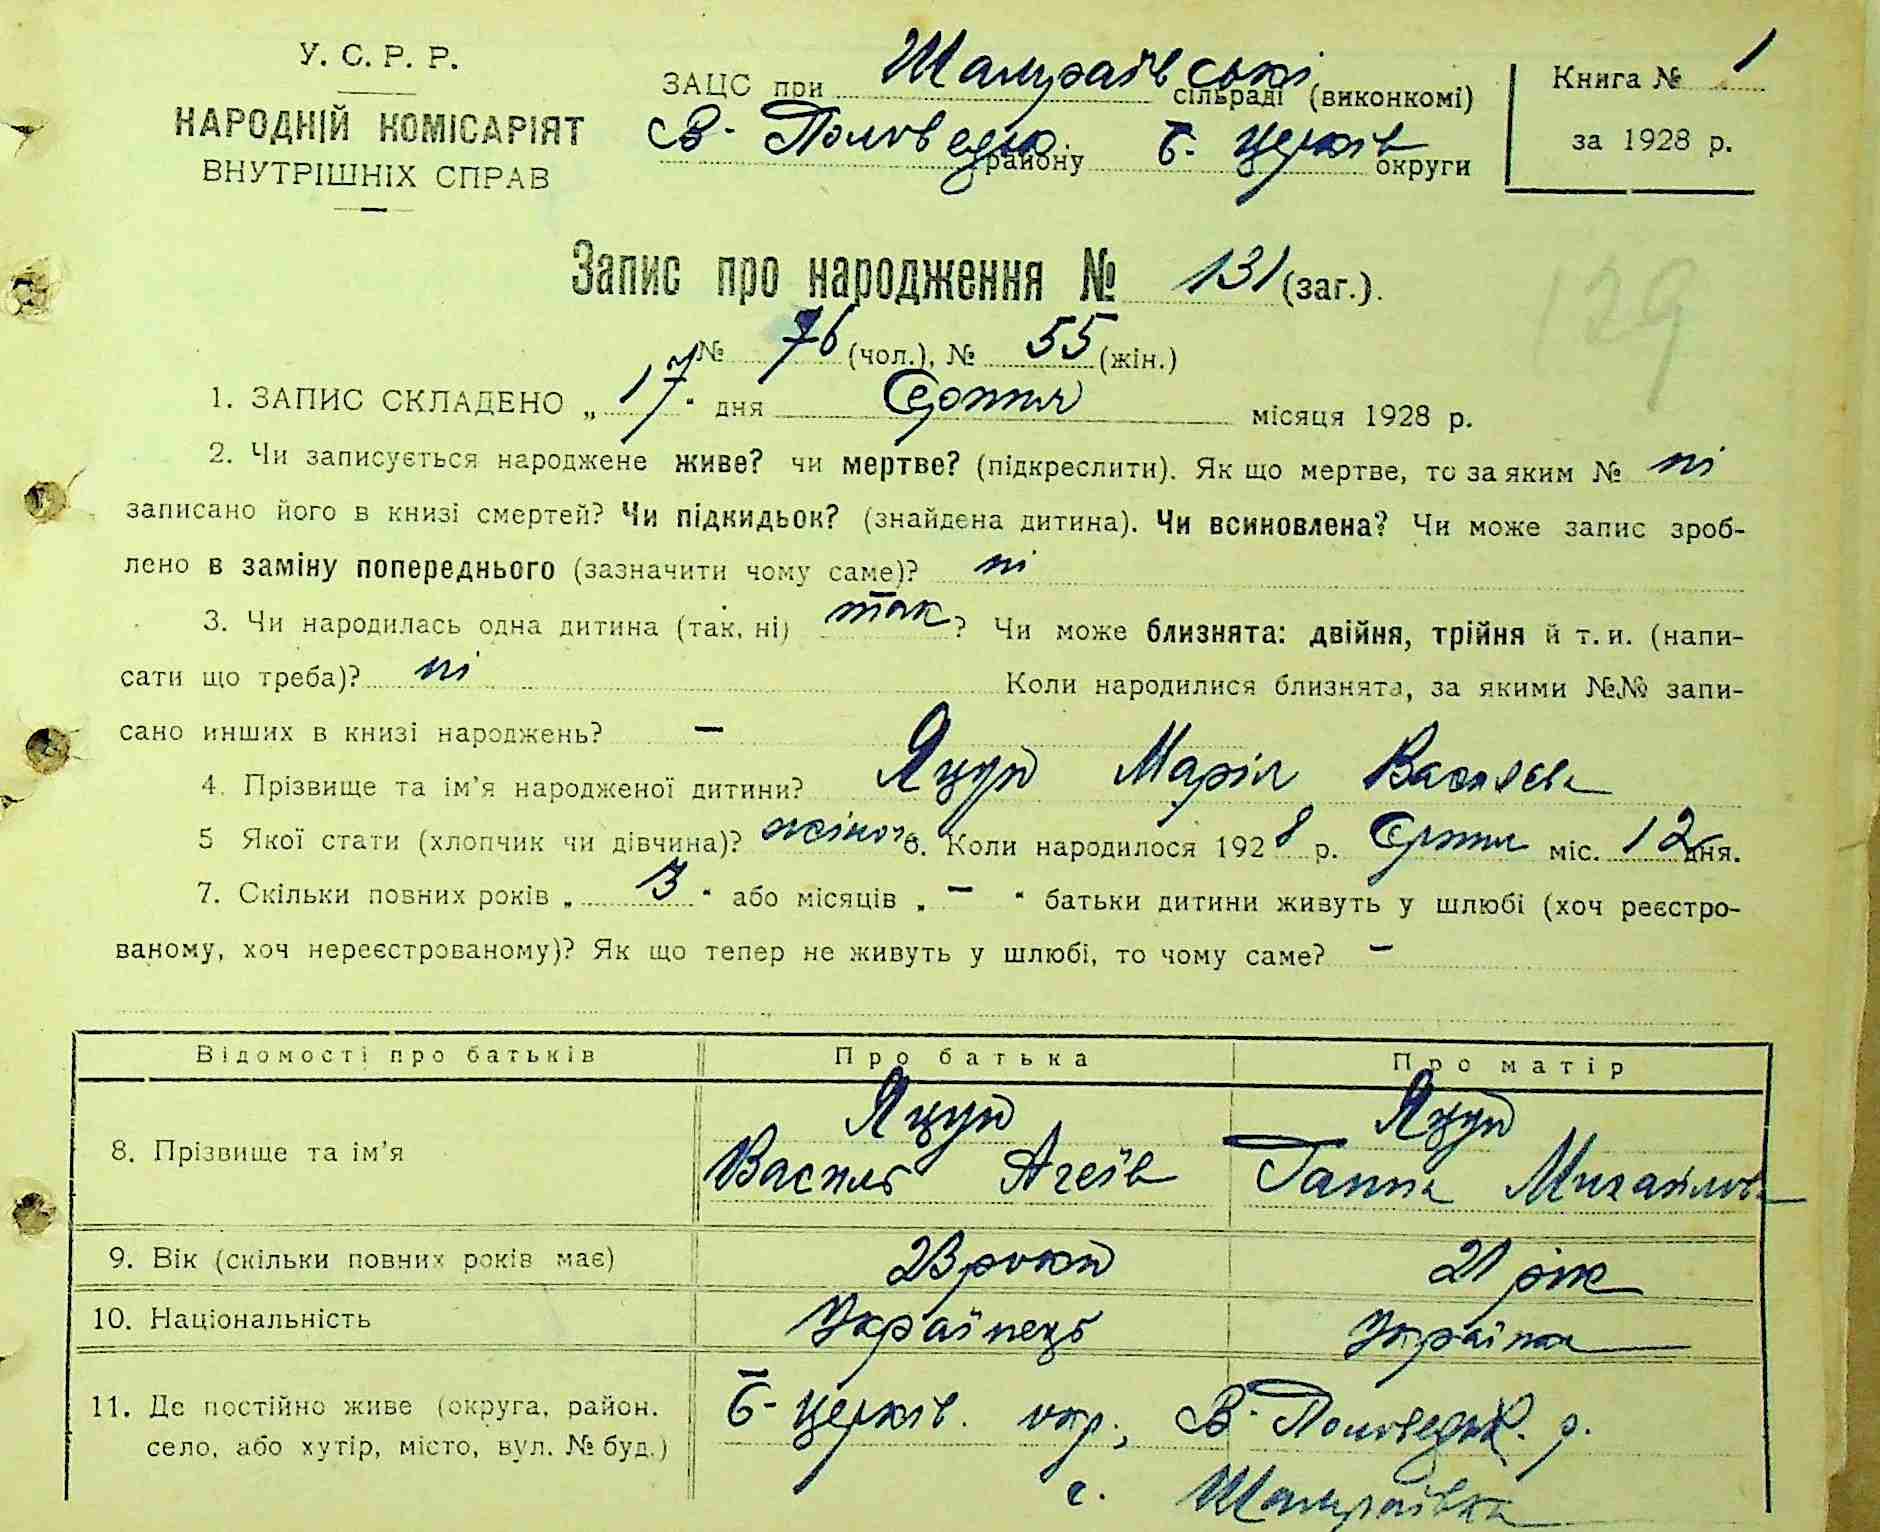 У. С. Р. Р.
НАРОДНІЙ КОМІСАРІЯТ
ВНУТРІШНІХ СПРАВ
ЗАЦС при Шамраївські сільраді (виконкомі)
В- Половецьк. району Б- Церків округи
Книга № 1
за 1928 р.
Запис про народження № 131 (заг.).
№ 76 (чол.), № 55 (жін.)
1. ЗАПИС СКЛАДЕНО „ 17 " дня Серпня місяця 1928 р.
2. Чи записується народжене живе? чи мертве? (підкреслити). Як що мертве, то за яким № ні
записано його в книзі смертей? Чи підкидьок? (знайдена дитина). Чи всиновлена? Чи може запис зроб-
лено в заміну попереднього (зазначити чому саме)? ні
3. Чи народилась одна дитина (так, ні) так ? Чи може близнята: двійня, трійня й т. и. (напи-
сати що треба)? ні Коли народилися близнята, за якими №№ запи-
сано инших в книзі народжень? —
4. Прізвище та ім'я народженої дитини? Яцун Марія Василєв
5 Якої стати (хлопчик чи дівчина)? жіноч 6. Коли народилося 1928 р. Серпня міс. 12 дня.
7. Скільки повних років „ 3 " або місяців „ — " батьки дитини живуть у шлюбі (хоч реєстро-
ваному, хоч нереєстрованому)? Як що тепер не живуть у шлюбі, то чому саме? —
Відомості про батьків Про батька Про матір
8. Прізвище та ім'я
Яцун Яцун
Василь Агеїв Ганна Михайлов
9. Вік (скільки повних років має) 23 роки 21 рік
10. Національність Українець Українка
11. Де постійно живе (округа, район. Б- Церків. окр., В- Половецьк. р.
село, або хутір, місто, вул. № буд.) с. Шамраївка
129